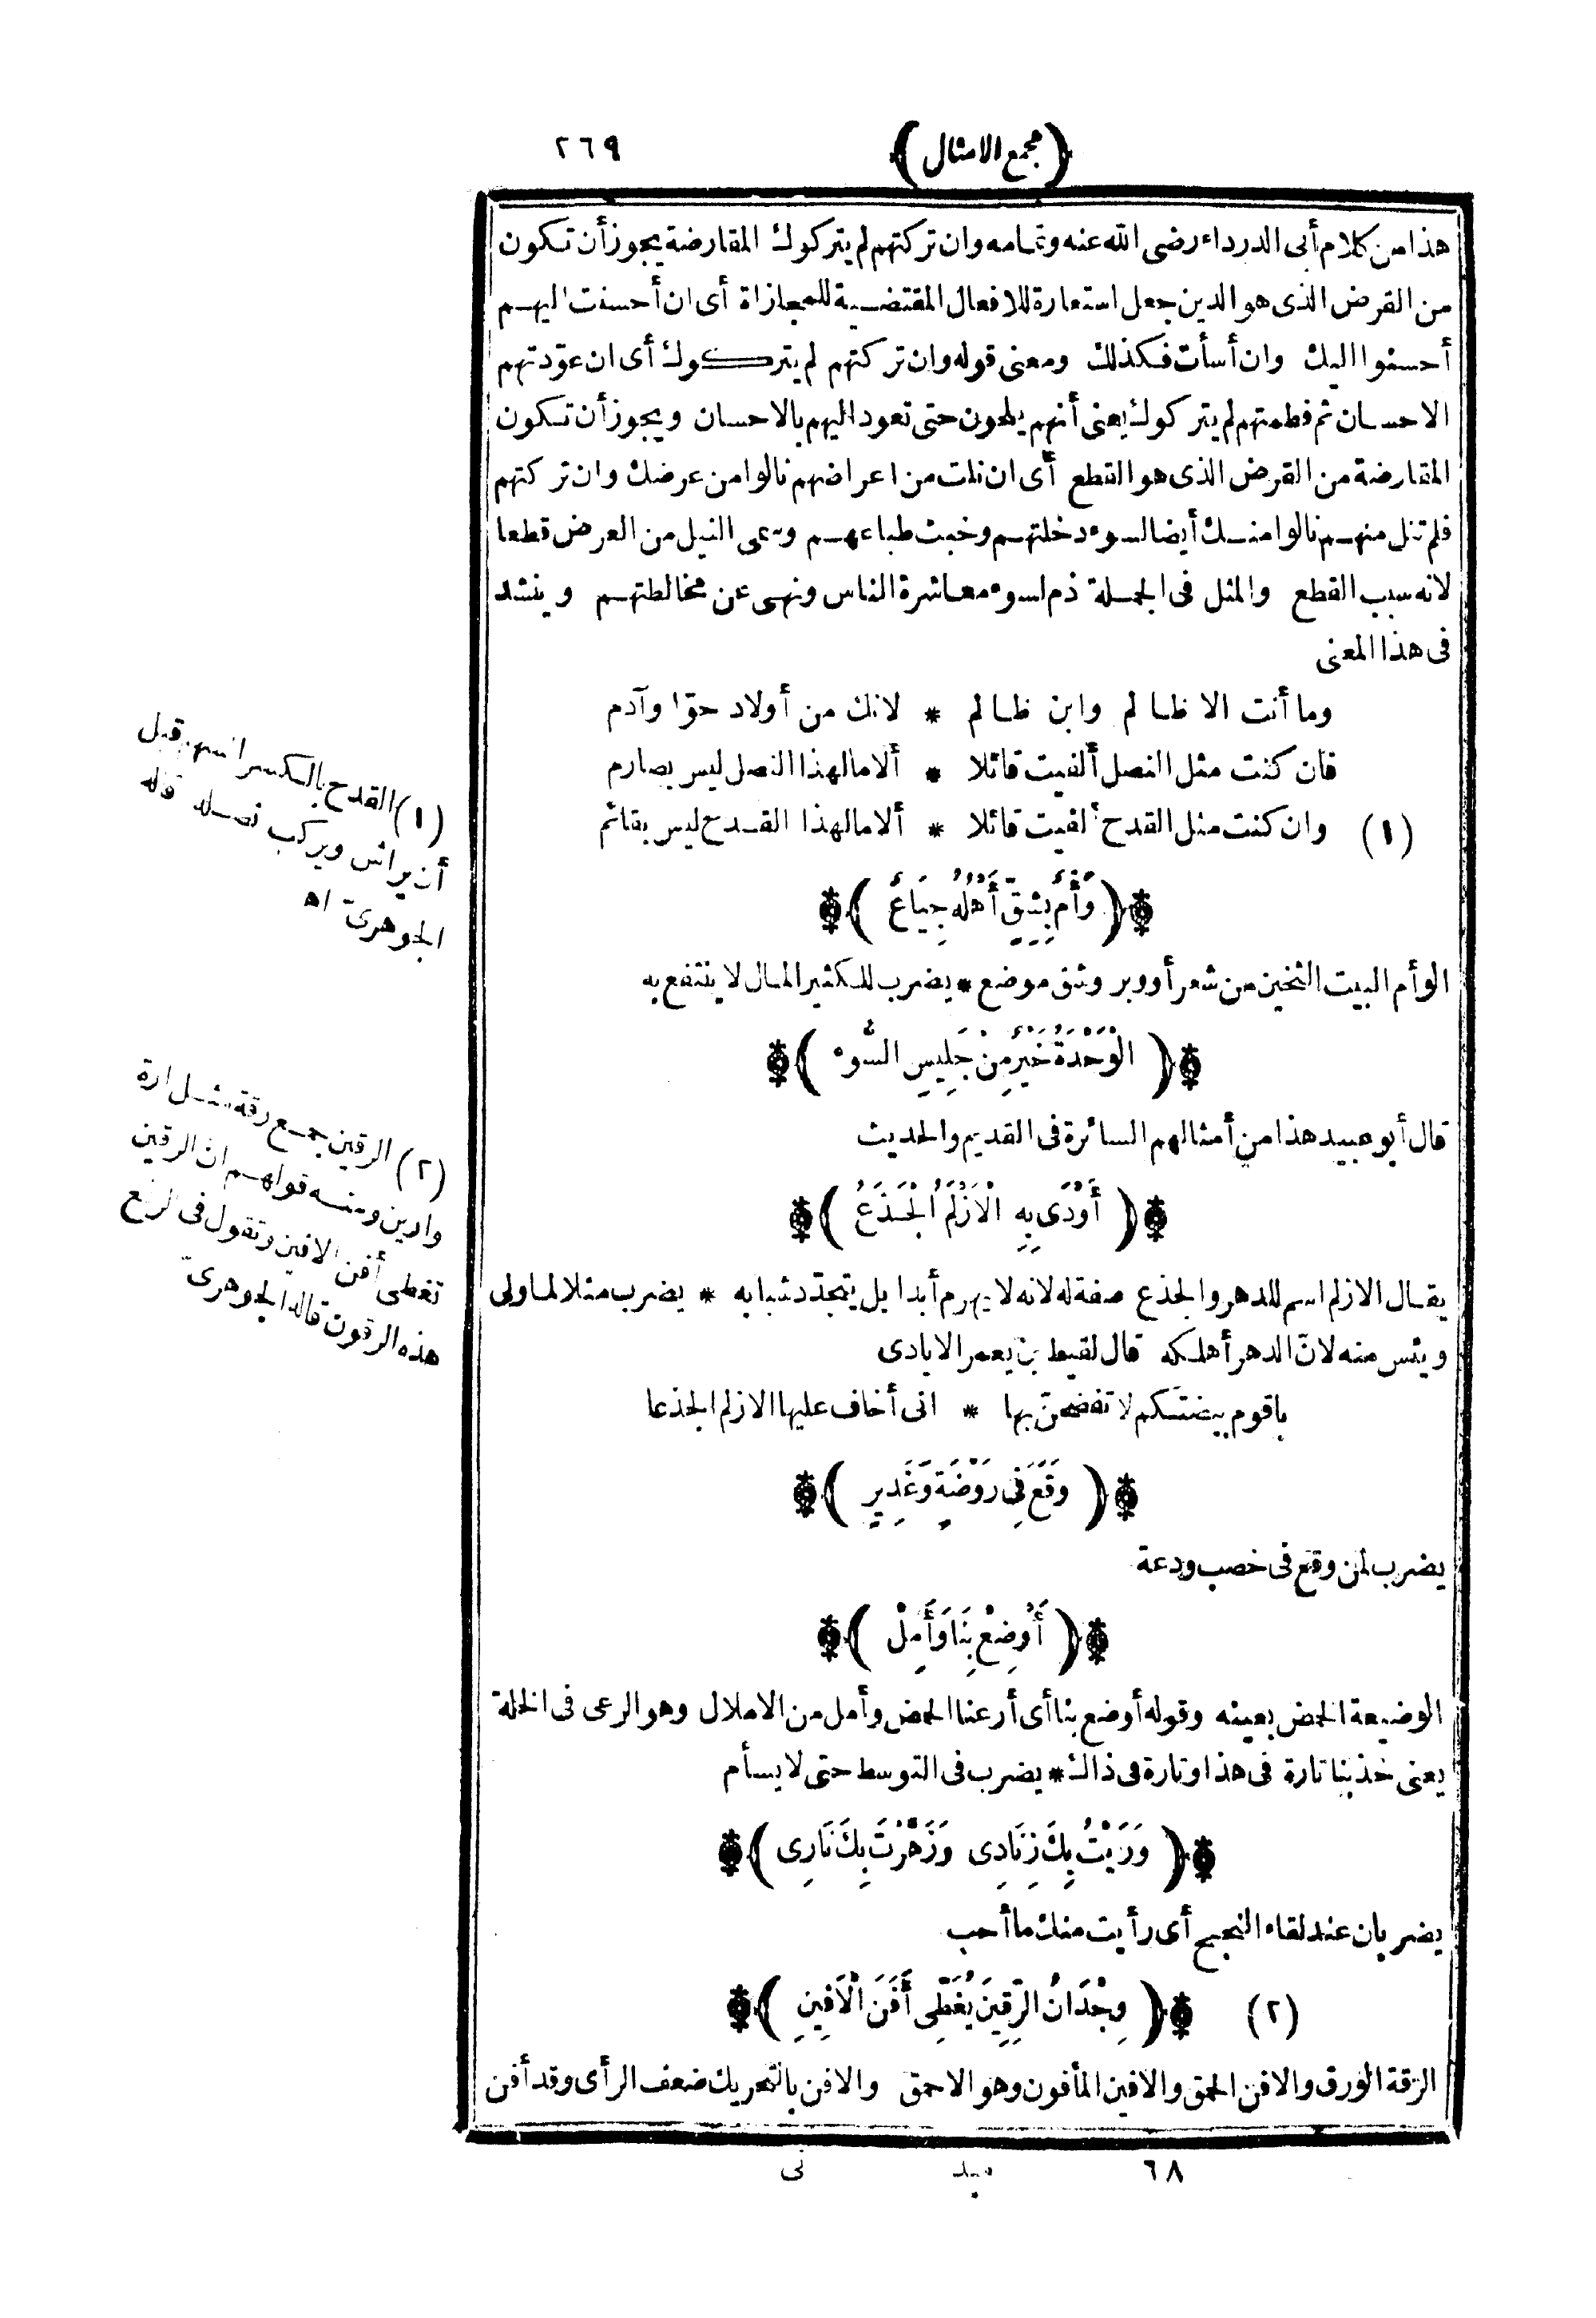 ﴿مجمع الامثال﴾ ٢٦٩
هذا من كلام أبى الدرداء رضى الله عنه وتمامه وان تركتهم لم يتركوك المقارضة يجوز أن تكون
من القرض الذى هو الدين جعل استعارة للافعال المقتضية للمجازاة أى ان أحسنت اليهم
أحسنوا اليك وان أسأت فكذلك ومعنى قوله وان تركتهم لم يتركوك أى ان عوّدتهم
الاحسان ثم فطمتهم لم يتركوك يعنى أنهم يلحون حتى تعود اليهم بالاحسان ويجوز أن تكون
المقارضة من القرض الذى هو القطع أى ان نلت من اعراضهم نالوا من عرضك وان تركتهم
فلم تنل منهم نالوا منك أيضا لسوء دخلتهم وخبث طباعهم وسمى النيل من العرض قطعا
لانه سبب القطع والمثل فى الجملة ذم لسوء معاشرة الناس ونهى عن مخالطتهم وينشد
فى هذا المعنى
وما أنت الا ظالم وابن ظالم * لانك من أولاد حوّا وآدم
فان كنت مثل النصل ألفيت قائلا * ألا ما لهذا النصل ليس بصارم
(١) وان كنت مثل القدح ألفيت قائلا * ألا ما لهذا القدح ليس بقائم
﴿ وَأْمٌ بِشِقٍّ أَهْلُهُ جِيَاعٌ ﴾
الوأم البيت الثخين من شعر أو وبر وشق موضع * يضرب للكثير المال لا ينتفع به
﴿ الْوَحْدَةُ خَيْرٌ مِنْ جَلِيسِ السُّوء ﴾
قال أبو عبيد هذا من أمثالهم السائرة فى القديم والحديث
﴿ أَوْدَى بِهِ الْاَزْلَمُ الْجَذَعُ ﴾
يقال الازلم اسم للدهر والجذع صفة له لانه لا يهرم أبدا بل يتجدّد شبابه * يضرب مثلا لما ولى
ويئس منه لانّ الدهر أهلكه قال لقيط بن يعمر الايادى
ياقوم بيضتكم لا تفضحنّ بها * انى أخاف عليها الازلم الجذعا
﴿ وَقَعَ فِى رَوْضَةٍ وَغَدِيرٍ ﴾
يضرب لمن وقع فى خصب ودعة
﴿ أَوْضِعْ بِنَا وَأَمِلْ ﴾
الوضيعة الحمض بعينه وقوله أوضع بنا أى أرعنا الحمض وأمل من الاملال وهو الرعى فى الخلة
يعنى خذ بنا تارة فى هذا وتارة فى ذاك * يضرب فى التوسط حتى لا يسأم
﴿ وَرَيْتُ بِكَ زِنَادِى وَزَهَرْتَ بِكَ نَارِى ﴾
يضربان عند لقاء النجح أى رأيت منك ما أحب
(٢) ﴿ وِجْدَانُ الرِّقِينَ يُغَطِّى أَفَنَ الْاَفِينِ ﴾
الرّقة الورق والافن الحمق والافين المأفون وهو الاحمق والافن بالتحريك ضعف الرأى وقد أفن
٦٨ ميد نى
(١) القدح بالكسر السهم قبل
أن يراش ويركب نصله قاله
الجوهرىّ اه
(٢) الرقين جمع رقة مثل ارة
وارين ومنه قولهم ان الرقين
تغطى أفن الافين وتقول فى الرفع
هذه الرقون قاله الجوهرىّ